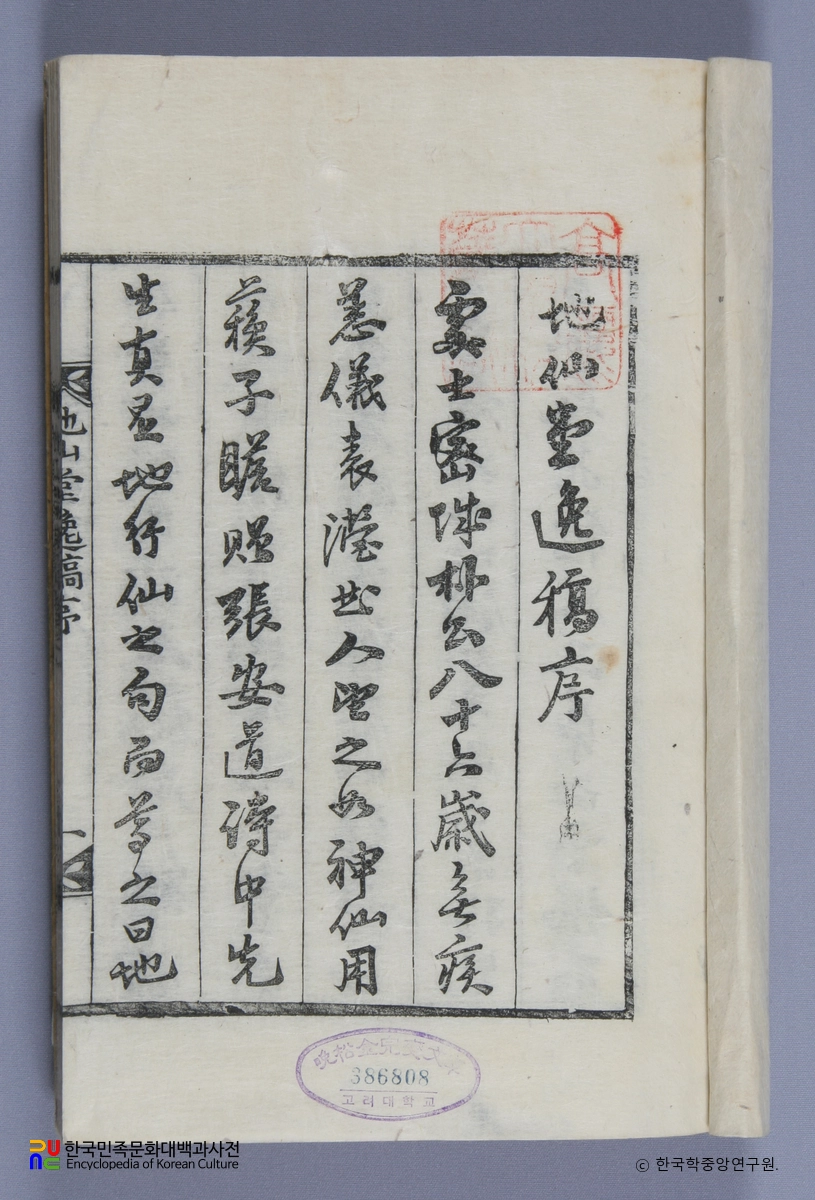 地仙堂逸稿序
處士密城朴公八十六歲無疾
恙儀表瀅人望之如神仙用
蘇子瞻贈張安道詩中先
生真是地行仙之句而尊之曰地
地仙堂逸稿序
一
晩松金完燮文庫
386808
고려대학교
한국민족문화대백과사전
Encyclopedia of Korean Culture
© 한국학중앙연구원.